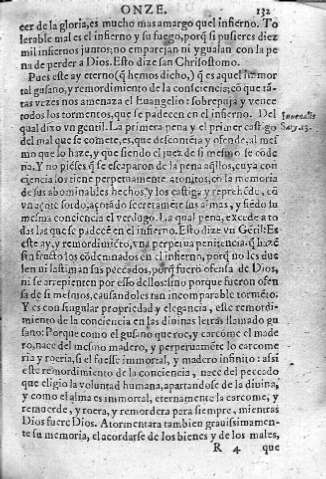 ONZE.
132
cer de la gloria, es mucho mas amargo quel infierno. To
lerable mal es el infierno y su fuego, porq̃ si pusieres diez
mil infiernos juntos, no emparejan ni ygualan con la pe
na de perder a Dios. Esto dize san Chrisostomo.
Pues este ay eterno (q̃ hemos dicho,) q̃ es aquel immor
tal gusano, y remordimiento de la consciencia, cõ que tã
tas vezes nos amenaza el Euangelio: sobrepuja y vence
todos los tormentos, que se padecen en el infierno. Del
qual dixo vn gentil. La primera pena y el primer castigo
del mal que se comete, es, que descontẽta y ofende, al mes
mo que lo haze, y que siendo el juez de si mesmo se conde
na. Y no pẽseys q̃ se escaparon de la pena aq̃llos, cuya con
ciencia los tiene perpetuamente atonitos, en la memoria
de sus abominables hechos, y los castiga y reprehẽde, cõ
vn açote sordo, açotado secretamẽte sus almas, y siẽdo su
mesma conciencia el verdugo. La qual pena, excede a to
das las que se padecẽ en el infierno. Esto dize vn Gẽtil. Es
este ay, y remordimiẽto, vna perpetua penitencia q̃ hazẽ
sin fructo los cõdennados en el infierno, porq̃ no les due
len ni lastiman sus peccados, porq̃ fuerõ ofensa de Dios,
ni se arrepienten por esso dellos: sino porque fueron ofen
sa de si mesmos, causandoles tan incomparable tormẽto.
Y es con singular propriedad y elegancia, este remordi-
miento de la conciencia en las diuinas letras llamado gu
sano: Porque como el gusano que roe, y carcome el made
ro, nace del mesmo madero, y perpetuamẽte lo carcome
ria y roeria, si el fuesse immortal, y madero infinito: assi
este remordimiento de la conciencia, nace del peccado
que eligio la voluntad humana, apartandose de la diuina,
y como el alma es immortal, eternamente la carcome, y
remuerde, y roera, y remordera para siempre, mientras
Dios fuere Dios. Atormentara tambien grauissimamen-
te su memoria, el acordarse de los bienes y de los males,
R 4 que
Iuuenalis